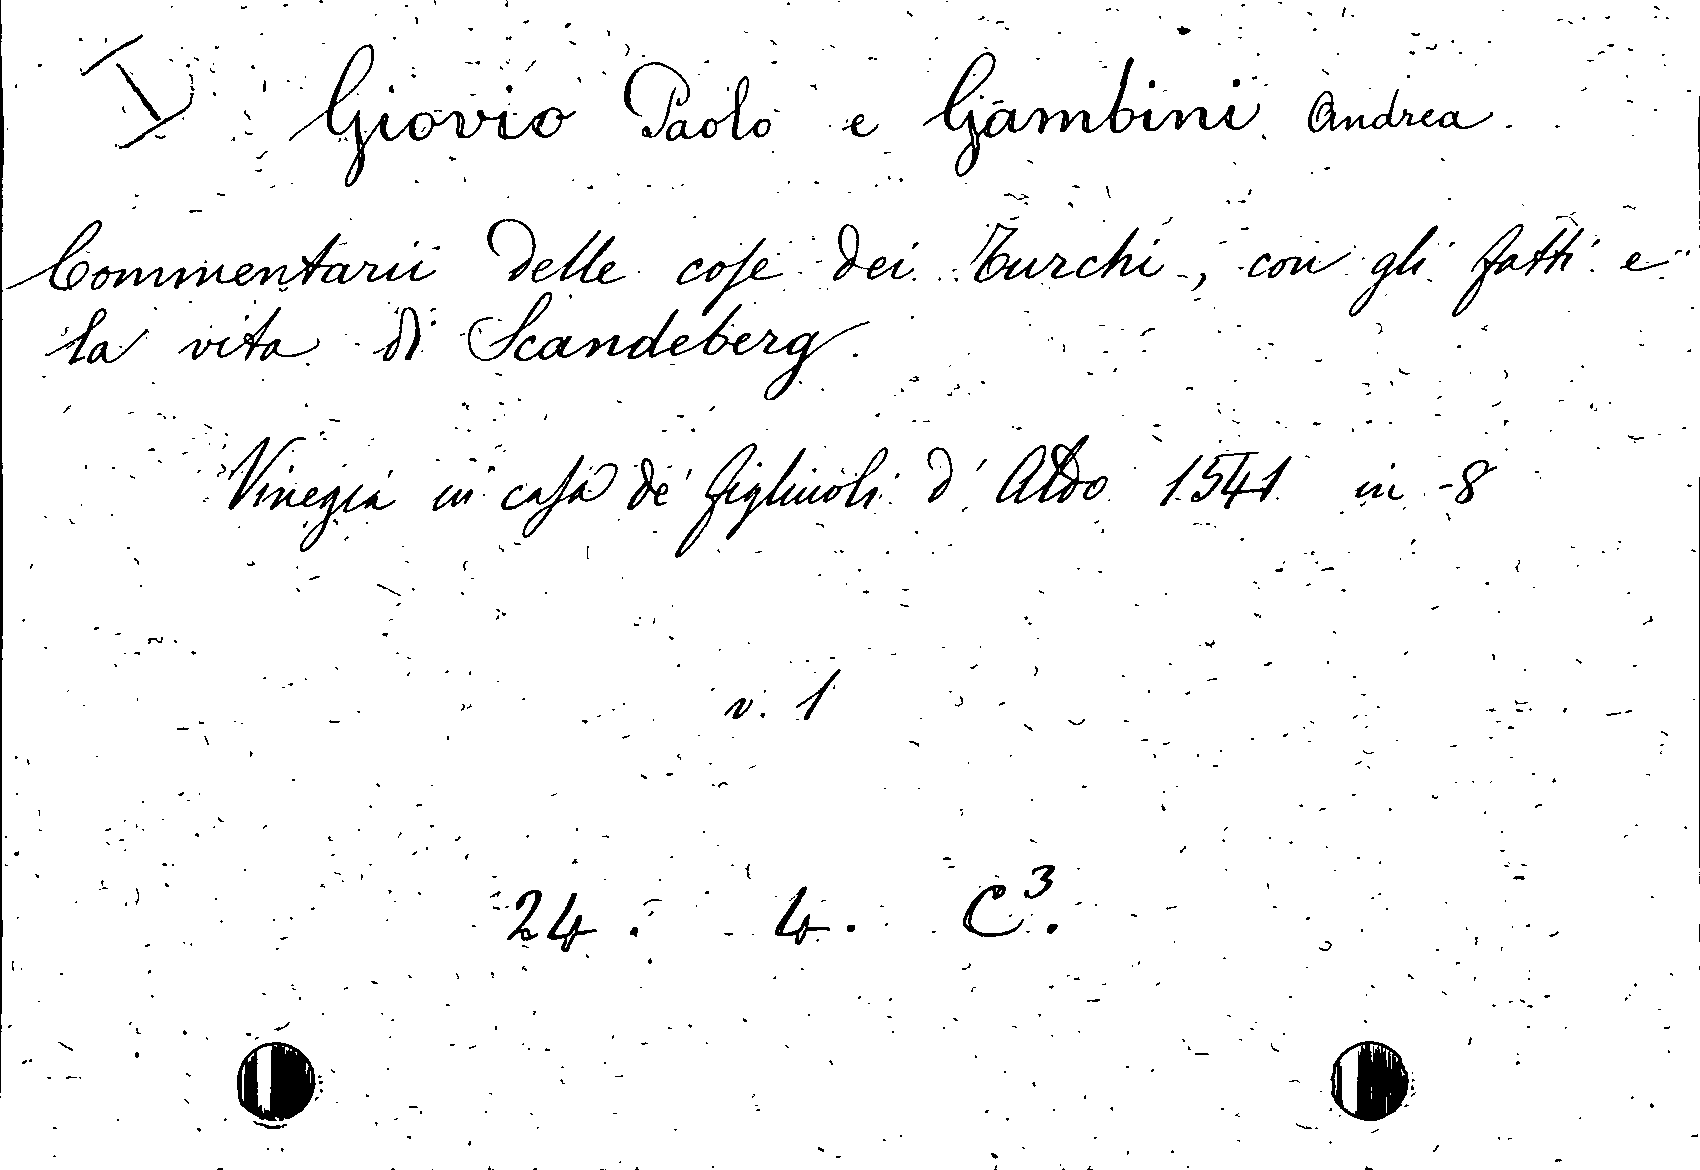 I Giovio Paolo e Gambini Andrea.
Commentarii delle cose dei Turchi, con gli fatti e
la vita di Scandeberg.
Vinegia in casa de' figliuoli d' Aldo 1541 in -8
v. 1
24. 4. C³.